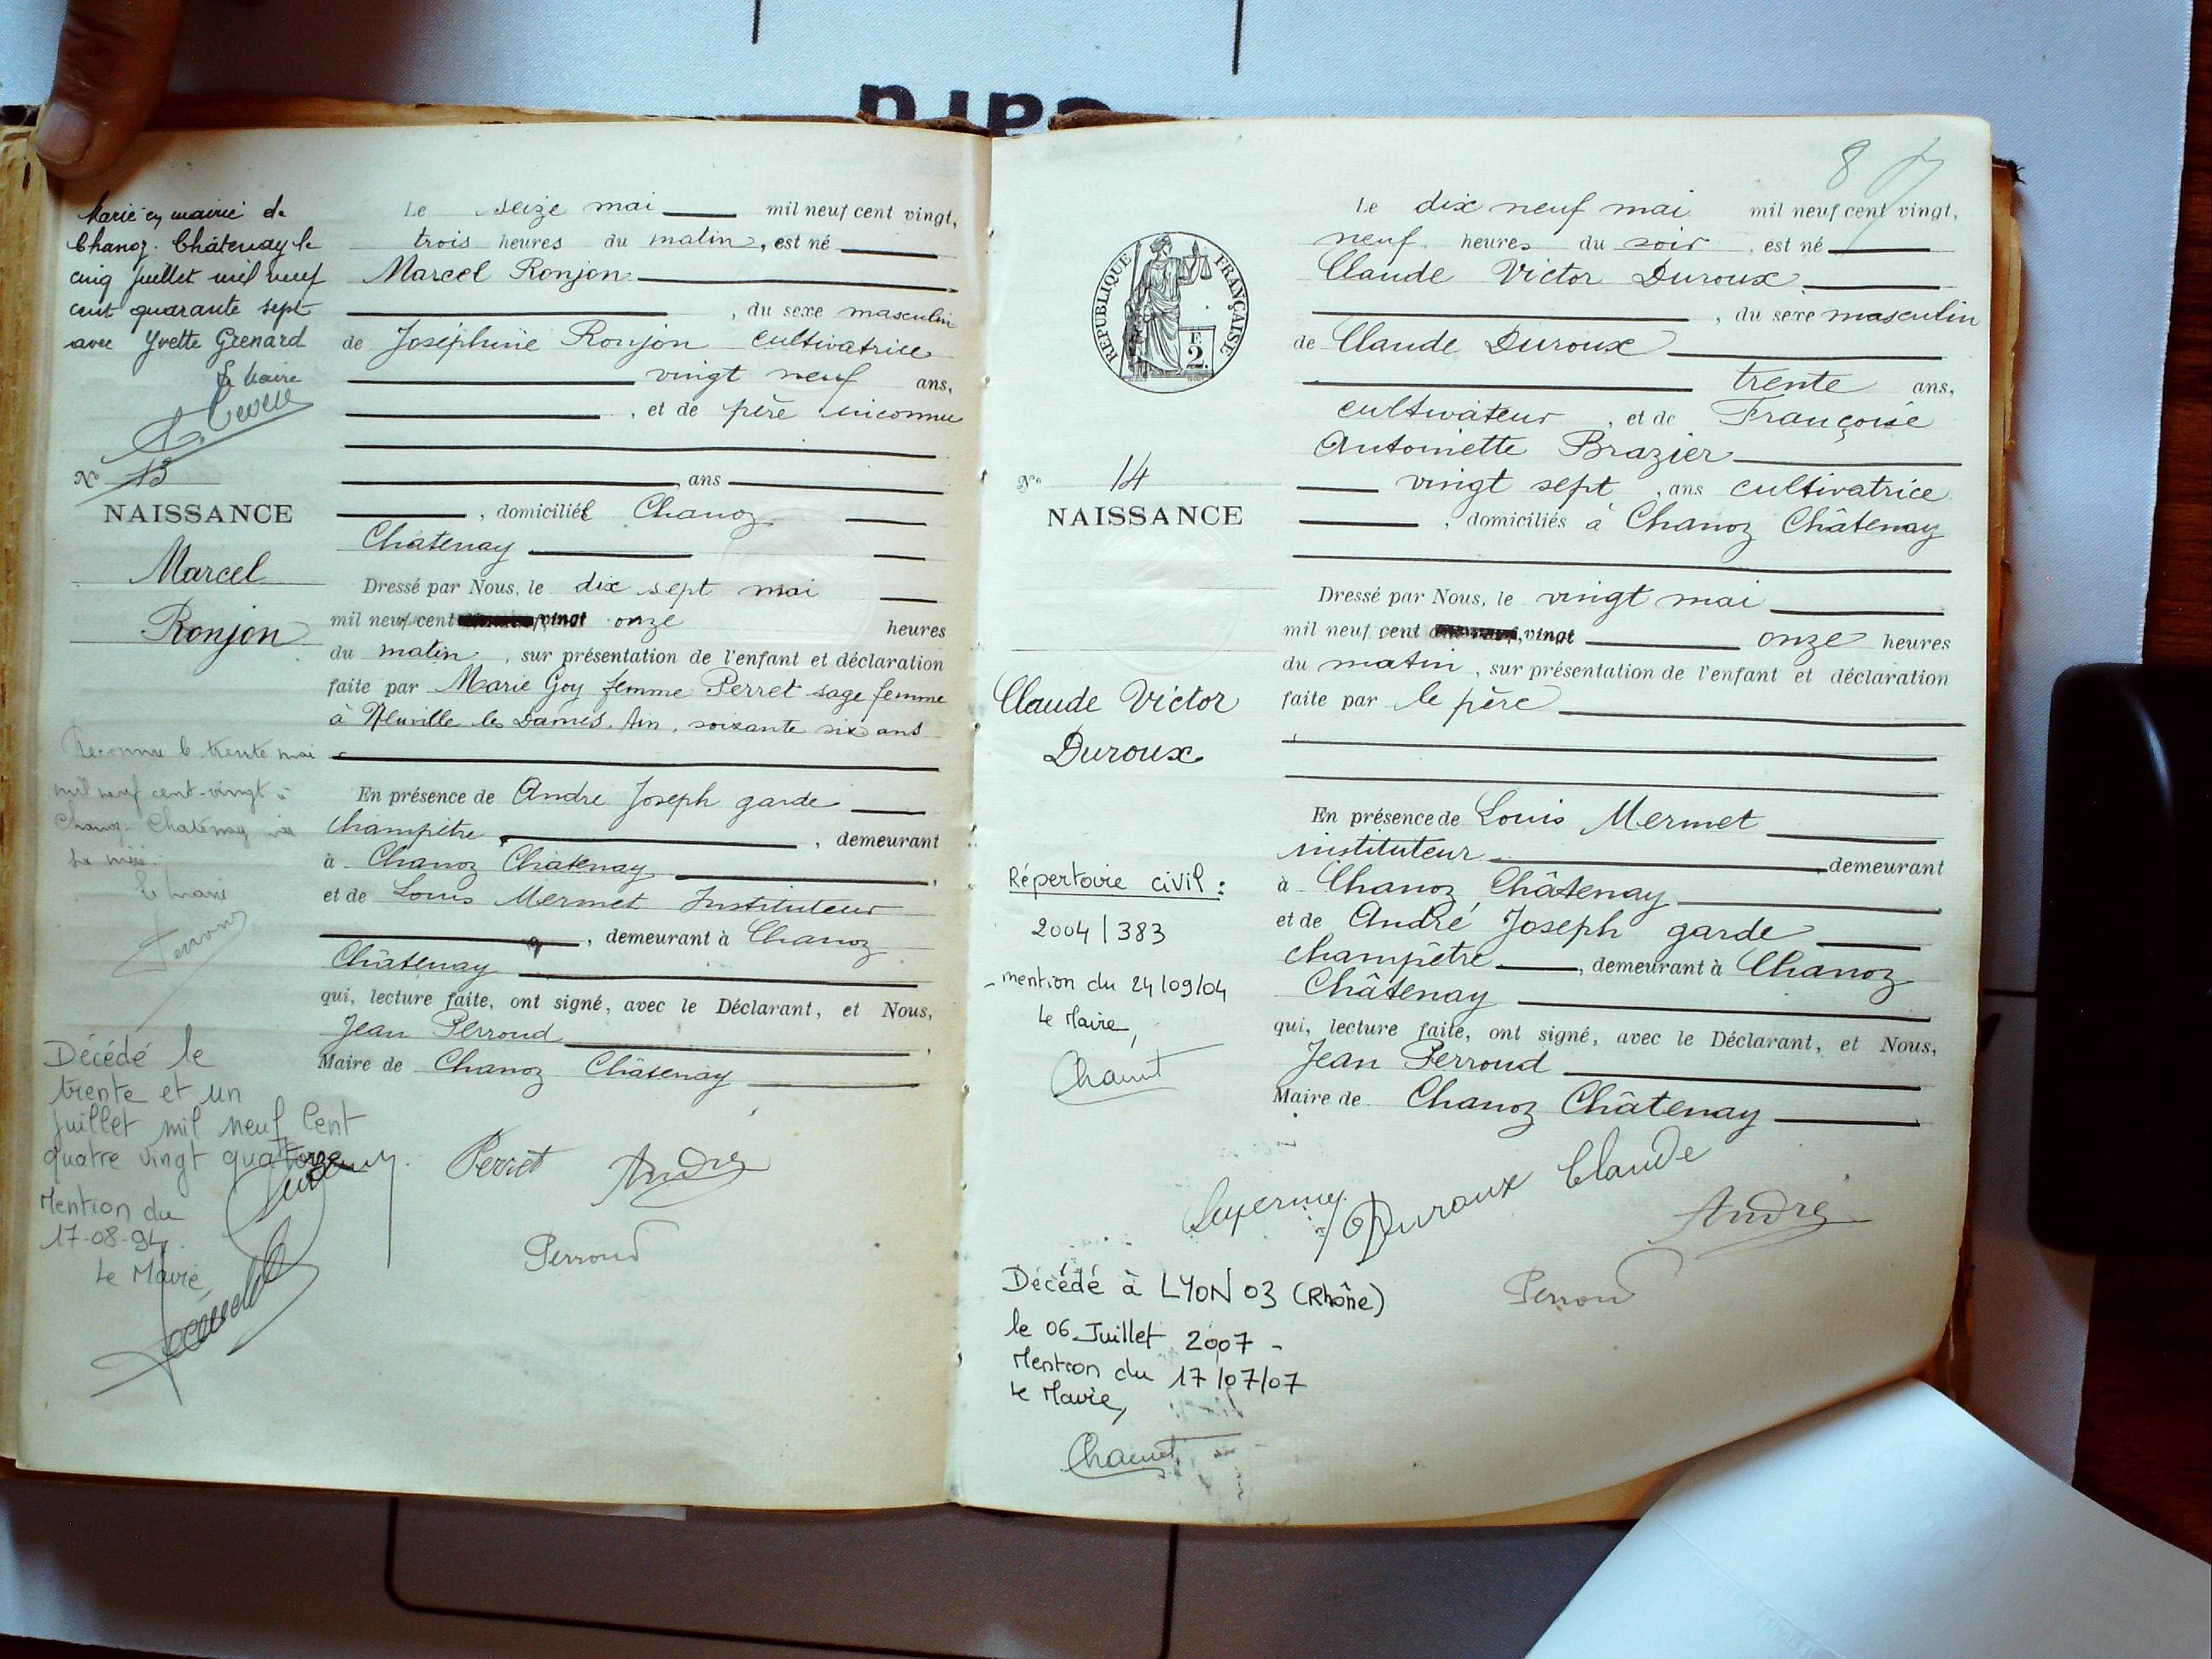 Marié en mairie de
Chanoz-Châtenay le
cinq juillet mil neuf
cent quarante sept
avec Yvette Grenard
Le Maire
N° 13
NAISSANCE
Marcel
Ronjon
Reconnu le trente mai
mil neuf cent-vingt à
Chanoz-Chatenay
sa mère.
le maire
Décédé le
trente et un
juillet mil neuf cent
quatre vingt quatorze
Mention du
17-08-94
Le Maire,
Le seize mai mil neuf cent vingt,
trois heures du matin, est né
Marcel Ronjon
, du sexe masculin
de Joséphine Ronjon cultivatrice
vingt neuf ans,
, et de père inconnu
, ans
, domiciliée Chanoz
Châtenay
Dressé par Nous, le dix sept mai
mil neuf cent vingt onze heures
du matin, sur présentation de l'enfant et déclaration
faite par Marie Goy femme Perret sage femme
à Neuville les Dames, Ain, soixante six ans
En présence de Andre Joseph garde
champêtre, demeurant
à Chanoz Châtenay,
et de Louis Mermet Instituteur
, demeurant à Chanoz
Châtenay
qui, lecture faite, ont signé, avec le Déclarant, et Nous,
Jean Perroud,
Maire de Chanoz Châtenay
Perret André
Perroud
8
RÉPUBLIQUE FRANÇAISE
2
N° 14
NAISSANCE
Claude Victor
Duroux
Répertoire civil :
2004/383
mention du 24/09/04
Le Maire,
Le dix neuf mai mil neuf cent vingt,
neuf heures du soir, est né
Claude Victor Duroux
, du sexe masculin
de Claude Duroux
trente ans,
cultivateur, et de Françoise
Antoinette Brazier
vingt sept, ans cultivatrice
, domiciliés à Chanoz Châtenay
Dressé par Nous, le vingt mai
mil neuf cent vingt onze heures
du matin, sur présentation de l'enfant et déclaration
faite par le père
En présence de Louis Mermet
instituteur demeurant
à Chanoz Châtenay
et de André Joseph garde
champêtre, demeurant à Chanoz
Châtenay
qui, lecture faite, ont signé, avec le Déclarant, et Nous,
Jean Perroud
Maire de Chanoz Châtenay
Duroux Claude
André
Perroud
Décédé à LYON 03 (Rhône)
le 06 Juillet 2007 -
Mention du 17/07/07
Le Maire,